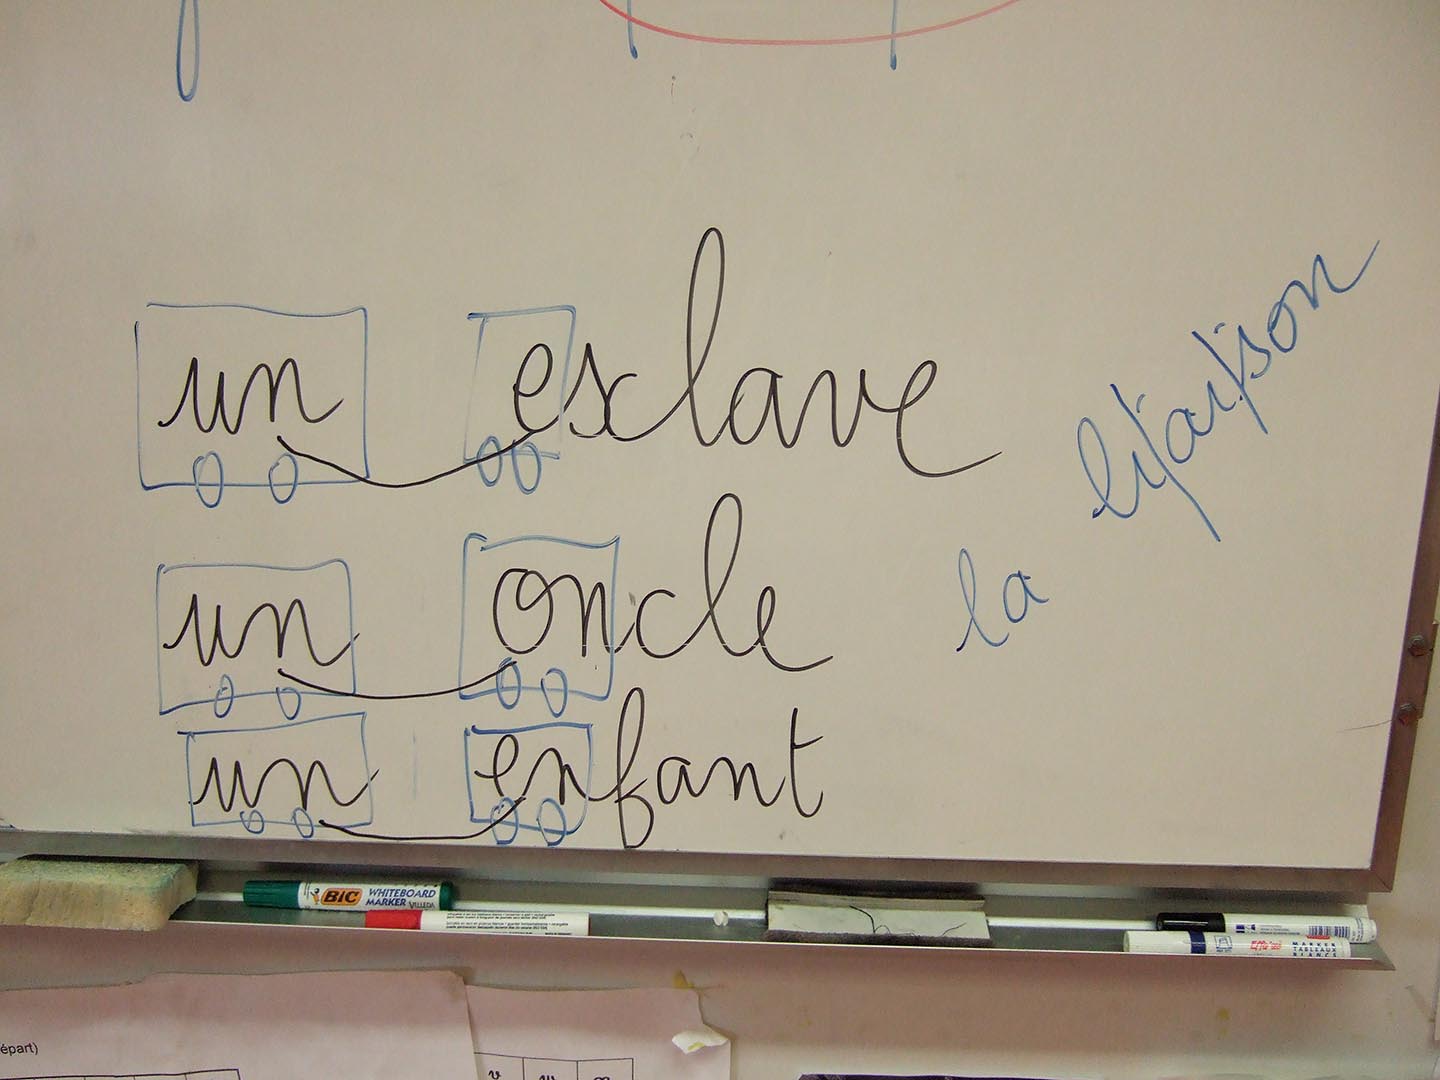 un esclave
la liaison
un oncle
un enfant
BIC WHITEBOARD
MARKER VELLEDA
MARKER
TABLEAUX
BLANCS
épart)